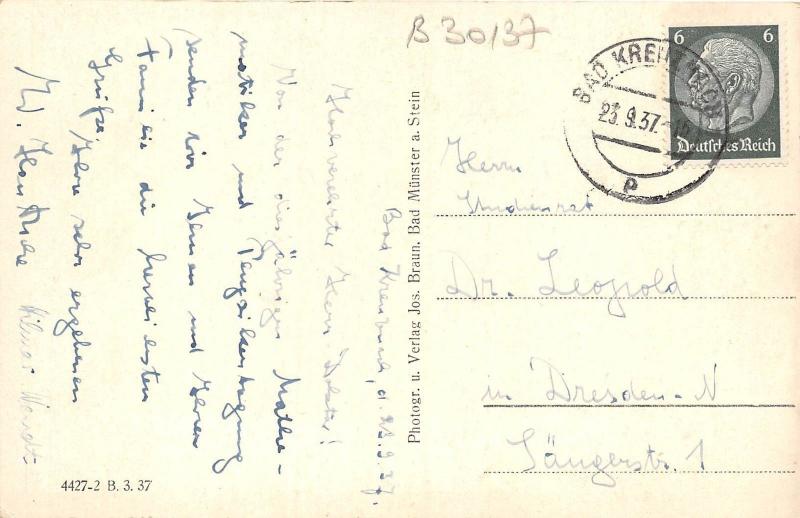 B 30/37
Bad Kreuznach, d. 22.9.37.
Hochverehrter Herr Doktor!
Von der diesjährigen Mathe-
matiker und Physikertagung
senden wir Ihnen und Ihrer
Familie die herzlichsten
Grüße.
Ihre sehr ergebenen
Photogr. u. Verlag Jos. Braun. Bad Münster a. Stein
4427-2 B. 3. 37
6 6
Deutsches Reich
BAD KREUZNACH
23.9.37.
p
Herrn
Studienrat
Dr. Leopold
in Dresden-N
Sängerstr. 1